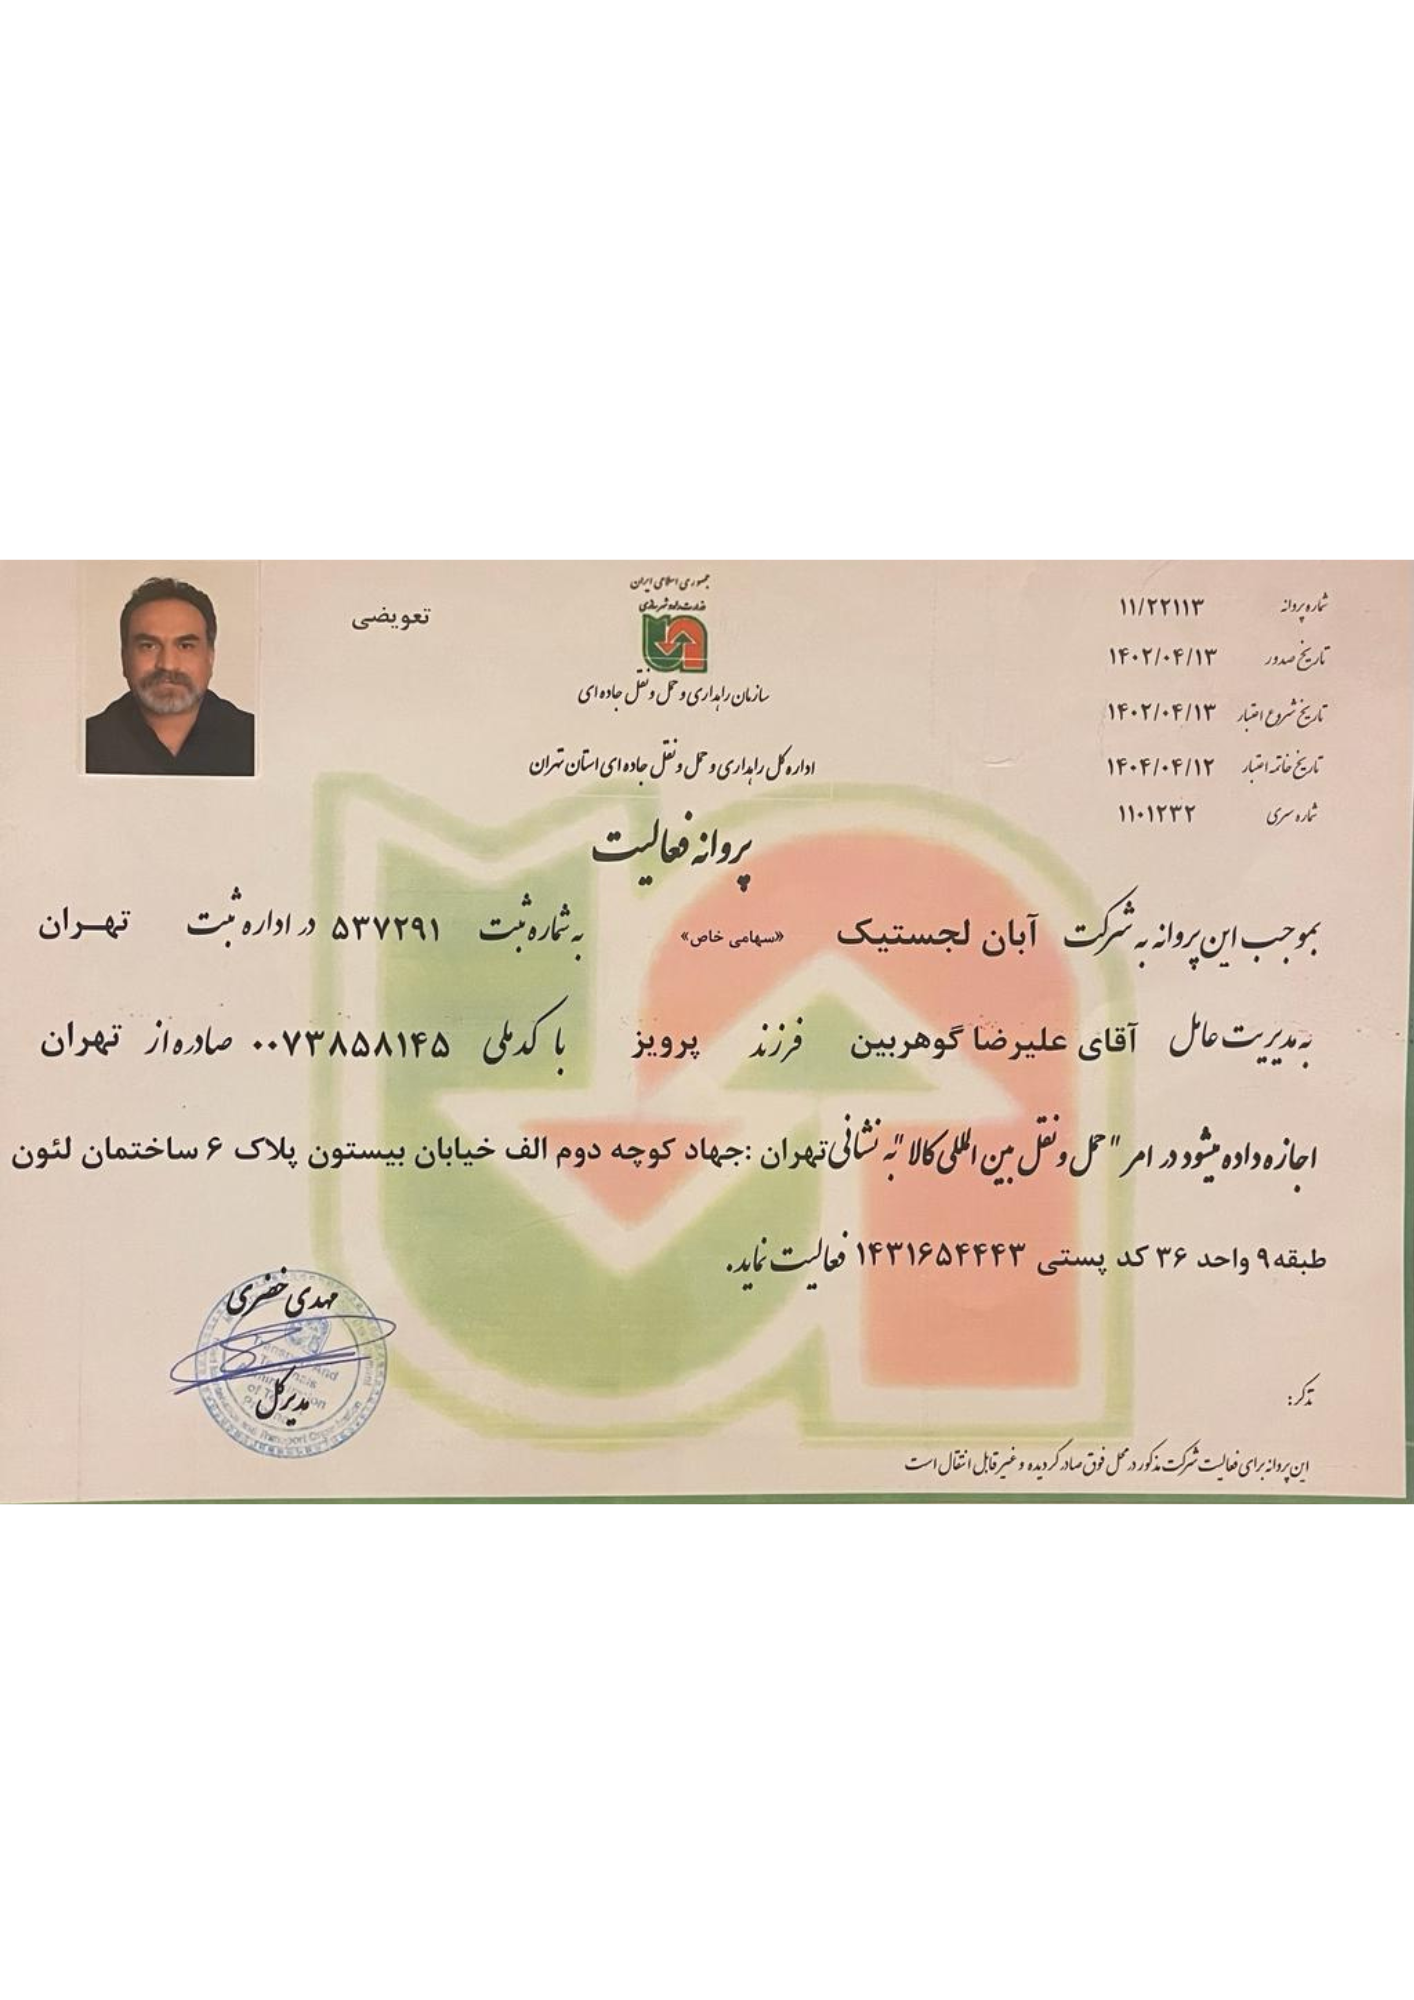 جمهوری اسلامی ایران
وزارت راه و شهرسازی
سازمان راهداری و حمل و نقل جاده ای
اداره کل راهداری و حمل و نقل جاده ای استان تهران
تعویضی
شماره پروانه ۱۱/۲۲۱۱۳
تاریخ صدور ۱۴۰۲/۰۴/۱۳
تاریخ شروع اعتبار ۱۴۰۲/۰۴/۱۳
تاریخ خاتمه اعتبار ۱۴۰۴/۰۴/۱۲
شماره سری ۱۱۰۱۲۳۲
پروانه فعالیت
بموجب این پروانه به شرکت آبان لجستیک «سهامی خاص» به شماره ثبت ۵۳۷۲۹۱ در اداره ثبت تهران
به مدیریت عامل آقای علیرضا گوهربین فرزند پرویز با کد ملی ۰۰۷۳۸۵۸۱۴۵ صادره از تهران
اجازه داده میشود در امر "حمل و نقل بین المللی کالا" به نشانی تهران :جهاد کوچه دوم الف خیابان بیستون پلاک ۶ ساختمان لئون
طبقه ۹ واحد ۳۶ کد پستی ۱۴۳۱۶۵۴۴۴۳ فعالیت نماید.
مهدی خضری
مدیرکل
تذکر:
این پروانه برای فعالیت شرکت مذکور در محل فوق صادر گردیده و غیر قابل انتقال است